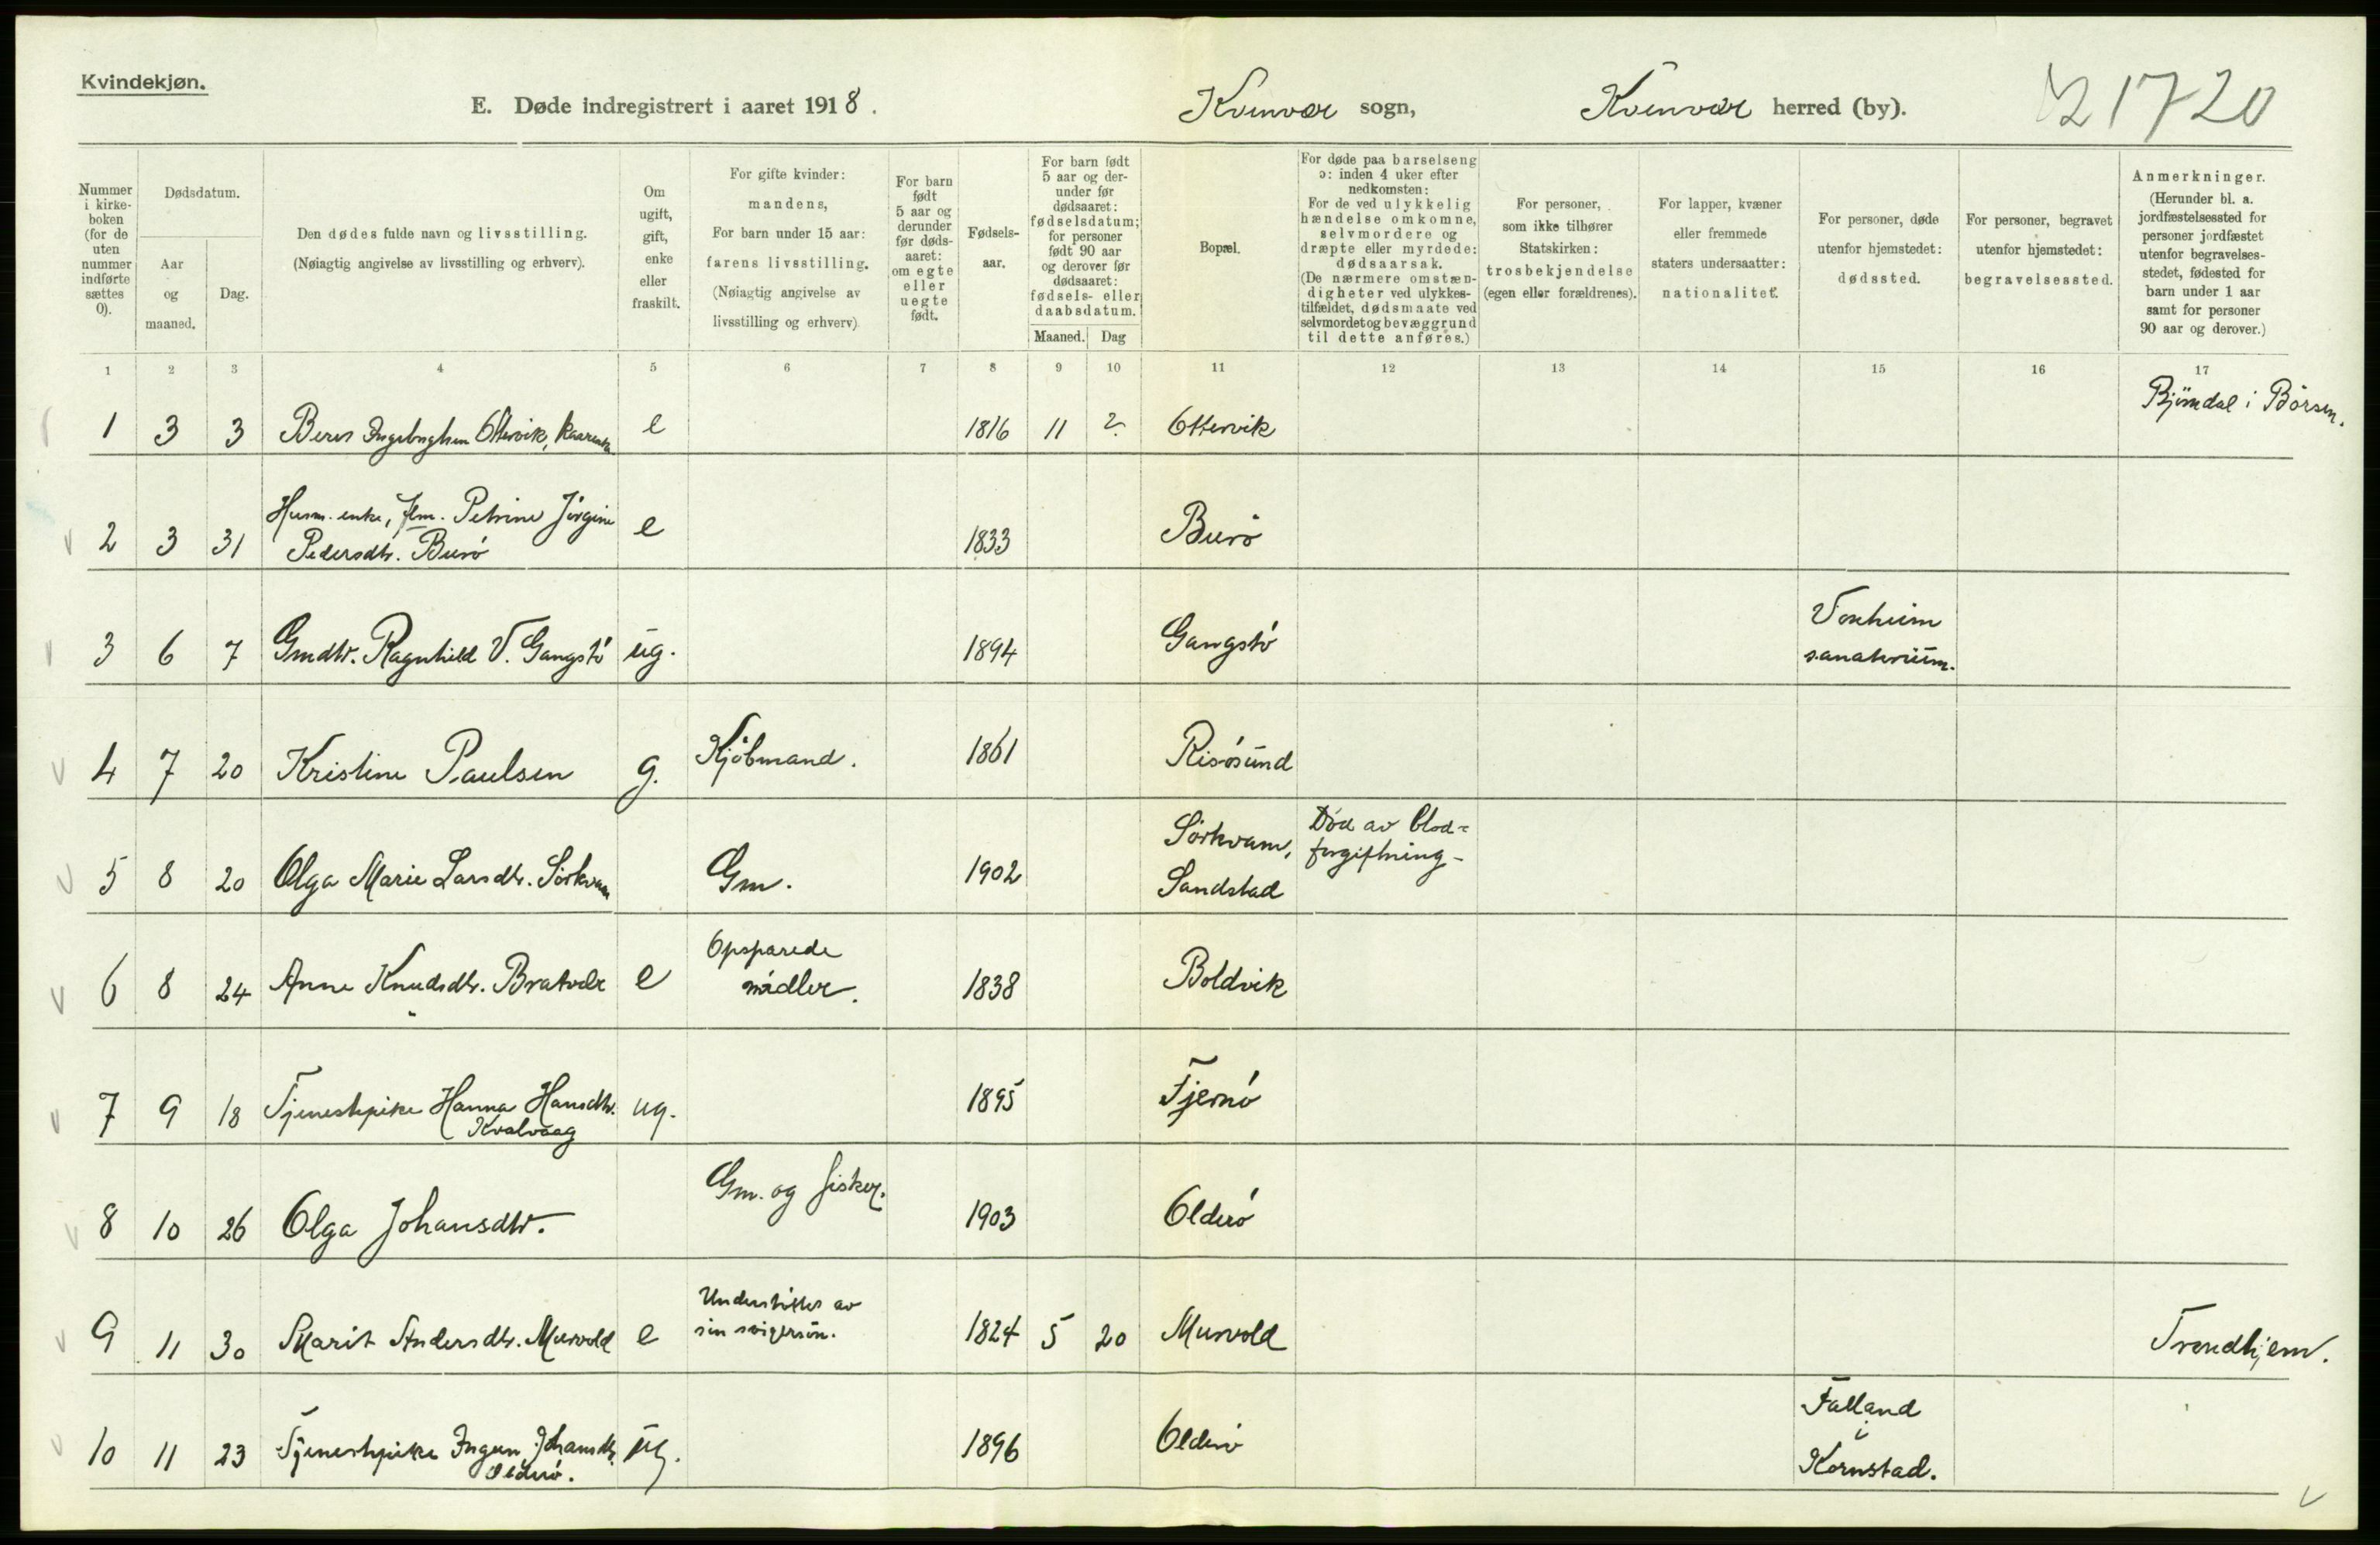 Kvindekjøn.
E. Døde indregistrert i aaret 1918.
Kvenvær sogn,
Kvenvær herred (by).
21720
Nummer i kirke-boken (for de uten nummer indførte sættes 0).
Dødsdatum.
Aar og maaned.
Dag.
Den dødes fulde navn og livsstilling.
(Nøiagtig angivelse av livsstilling og erhverv).
Om ugift, gift, enke eller fraskilt.
For gifte kvinder: mandens,
For barn under 15 aar: farens livsstilling.
(Nøiagtig angivelse av livsstilling og erhverv)
For barn født 5 aar og derunder før døds-aaret: om egte eller uegte født.
Fødsels-aar.
For barn født 5 aar og der-under før dødsaaret: fødselsdatum; for personer født 90 aar og derover før dødsaaret: fødsels- eller daabsdatum.
Maaned.
Dag
Bopæl.
For døde paa barselseng ɔ: inden 4 uker efter nedkomsten:
For de ved ulykkelig hændelse omkomne, selvmordere og dræpte eller myrdede: dødsaarsak.
(De nærmere omstæn-digheter ved ulykkes-tilfældet, dødsmaate ved selvmordet og bevæggrund til dette anføres.)
For personer, som ikke tilhører Statskirken: trosbekjendelse (egen eller forældrenes).
For lapper, kvæner eller fremmede staters undersaatter: nationalitet.
For personer, døde utenfor hjemstedet: dødssted.
For personer, begravet utenfor hjemstedet: begravelsessted.
Anmerkninger.
(Herunder bl. a. jordfæstelsessted for personer jordfæstet utenfor begravelses-stedet, fødested for barn under 1 aar samt for personer 90 aar og derover.)
1 2 3 4 5 6 7 8 9 10 11 12 13 14 15 16 17
1 3 3 Ottervik, e 1816 11 2. Ottervik Björndal i Börsen.
2 3 31 Husm. enke, flm. Petrine Jörgine
Pedersdtr. Burö e 1833 Burö
3 6 7 Gmdtr. Ragnhild V. Gangstö ug. 1894 Gangstö Vonheim
sanatorium.
4 7 20 Kristine Paulsen g. Kjöbmand. 1861 Risösund
5 8 20 Olga Marie Larsdtr. Sörkvam Gm. 1902 Sörkvam,
Sandstad Död av blod=
forgiftning-
6 8 24 Anne Knudsdtr. Bratvær e Opsparede
midler. 1838 Boldvik
7 9 18 Tjenestepike Hanna Hansdtr.
Kvalvaag ug. 1895 Fjernö
8 10 26 Olga Johansdtr. Gm. og fisker. 1903 Olderö
9 11 30 Marit Andersdtr. Murvold e Understöttes av
sin svigersön. 1824 5 20 Murvold Trondhjem.
10 11 23 Tjenestepike Ingun Johansdtr.
Olderö. ug. 1896 Olderö Falland
i
Kornstad.